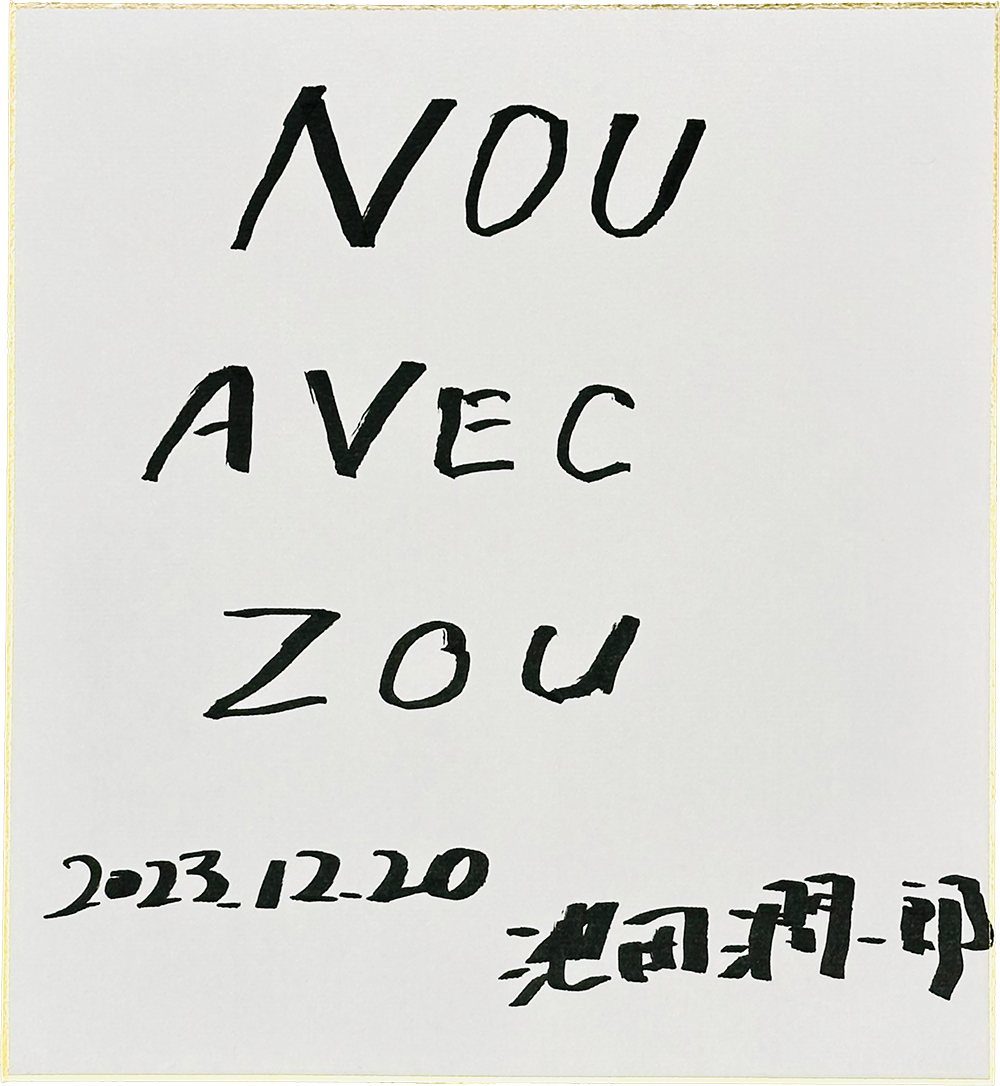 NOU
AVEC
ZOU
2023.12.20
池田潤一郎